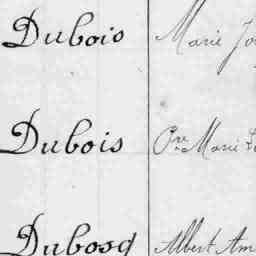 Dubois Marie
Dubois Marie
Dubosq Albert